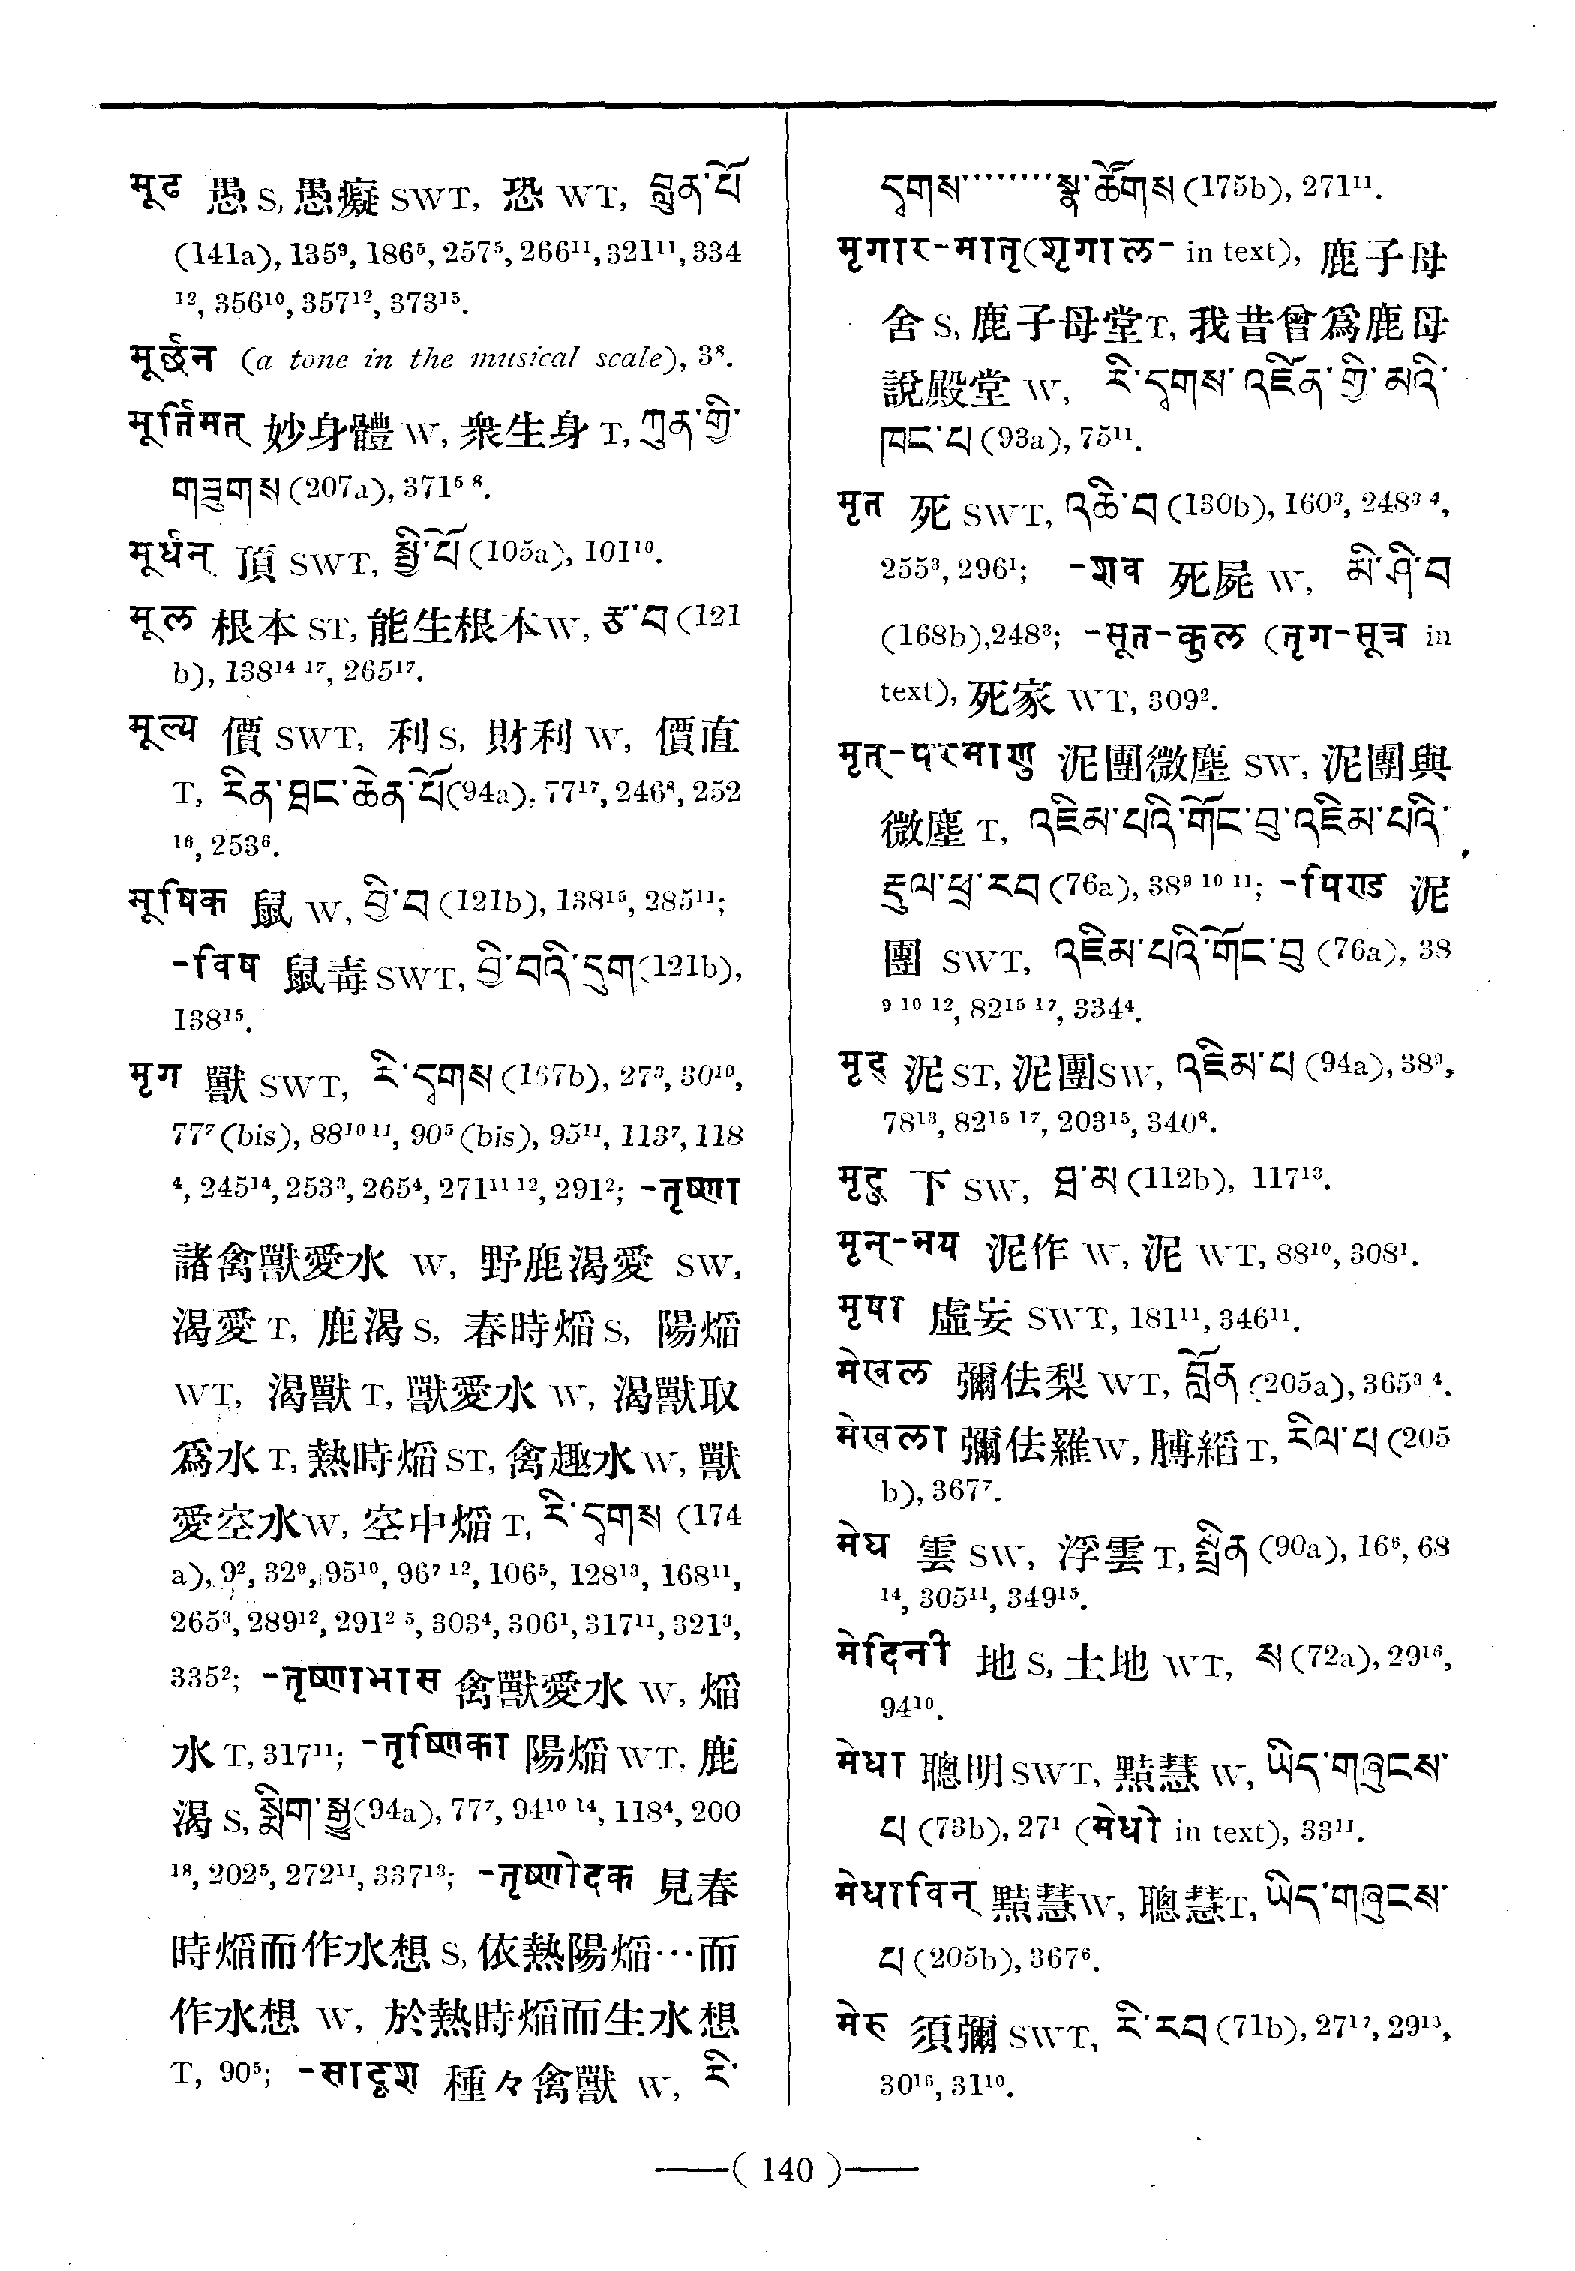 मूढ 愚 S, 愚癡 SWT, 恐 WT, བླུན་པོ
(141a), 135⁹, 186⁵, 257⁵, 266¹¹, 321¹¹, 334
¹², 356¹⁰, 357¹², 373¹⁵.
मूर्छन (a tone in the musical scale), 3⁸.
मूर्तिमत् 妙身體 W, 衆生身 T, ཀུན་གྱི་
གཟུགས (207a), 371⁵ ⁸.
मूर्धन् 頂 SWT, སྤྱི་པོ (105a), 101¹⁰.
मूल 根本 ST, 能生根本 W, རྩ་བ (121
b), 138¹⁴ ¹⁷, 265¹⁷.
मूल्य 價 SWT, 利 S, 財利 W, 價直
T, རིན་ཐང་ཆེན་པོ (94a), 77¹⁷, 246⁸, 252
¹⁶, 253⁶.
मूषिक 鼠 W, བྱི་བ (121b), 138¹⁵, 285¹¹;
-विष 鼠毒 SWT, བྱི་བའི་དུག (121b),
138¹⁵.
मृग 獸 SWT, རི་དྭགས (167b), 27³, 30¹⁰,
77⁷ (bis), 88¹⁰ ¹¹, 90⁵ (bis), 95¹¹, 113⁷, 118
⁴, 245¹⁴, 253³, 265⁴, 271¹¹ ¹², 291²; -तृष्णा
諸禽獸愛水 W, 野鹿渴愛 SW,
渴愛 T, 鹿渴 S, 春時熖 S, 陽熖
WT, 渴獸 T, 獸愛水 W, 渴獸取
爲水 T, 熱時熖 ST, 禽趣水 W, 獸
愛空水 W, 空中熖 T, རི་དྭགས (174
a), 9², 32⁹, 95¹⁰, 96⁷ ¹², 106⁵, 128¹³, 168¹¹,
265³, 289¹², 291² ⁵, 303⁴, 306¹, 317¹¹, 321³,
335²; -तृष्णाभास 禽獸愛水 W, 熖
水 T, 317¹¹; -तृष्णिका 陽熖 WT, 鹿
渴 S, སྨིག་སྒྱུ (94a), 77⁷, 94¹⁰ ¹⁴, 118⁴, 200
¹⁸, 202⁵, 272¹¹, 337¹³; -तृष्णोदक 見春
時熖而作水想 S, 依熱陽熖…而
作水想 W, 於熱時熖而生水想
T, 90⁵; -सादृश 種々禽獸 W, རི་
དྭགས········སྣ་ཚོགས (175b), 271¹¹.
मृगार-मातृ (शृगाल- in text), 鹿子母
舍 S, 鹿子母堂 T, 我昔曾爲鹿母
說殿堂 W, རི་དྭགས་འཛིན་གྱི་མའི་
ཁང་པ (93a), 75¹¹.
मृत 死 SWT, འཆི་བ (130b), 160³, 248³ ⁴,
255³, 296¹; -शव 死屍 W, མི་ཤི་བ
(168b), 248³; -सूत-कुल (तृग-सूत्र in
text), 死家 WT, 309².
मृत्-परमाणु 泥團微塵 SW, 泥團與
微塵 T, འཇིམ་པའི་གོང་བུ་འཇིམ་པའི་
རྡུལ་ཕྲ་རབ (76a), 38⁹ ¹⁰ ¹¹; -पिण्ड 泥
團 SWT, འཇིམ་པའི་གོང་བུ (76a), 38
⁹ ¹⁰ ¹², 82¹⁵ ¹⁷, 334⁴.
मृद् 泥 ST, 泥團 SW, འཇིམ་པ (94a), 38⁹,
78¹³, 82¹⁵ ¹⁷, 203¹⁵, 340⁸.
मृदु 下 SW, ཐ་མ (112b), 117¹³.
मृन्-मय 泥作 W, 泥 WT, 88¹⁰, 308¹.
मृषा 虛妄 SWT, 181¹¹, 346¹¹.
मेखल 彌佉梨 WT, བློན (205a), 365³ ⁴.
मेखला 彌佉羅 W, 膊縚 T, རིལ་པ (205
b), 367⁷.
मेघ 雲 SW, 浮雲 T, སྤྲིན (90a), 16⁶, 68
¹⁴, 305¹¹, 349¹⁵.
मेदिनी 地 S, 土地 WT, ས (72a), 29¹⁶,
94¹⁰.
मेधा 聰明 SWT, 黠慧 W, ཡིད་གཞུངས་
པ (73b), 27¹ (मेधो in text), 33¹¹.
मेधाविन् 黠慧 W, 聰慧 T, ཡིད་གཞུངས་
པ (205b), 367⁶.
मेरु 須彌 SWT, རི་རབ (71b), 27¹⁷, 29¹³,
30¹⁶, 31¹⁰.
( 140 )